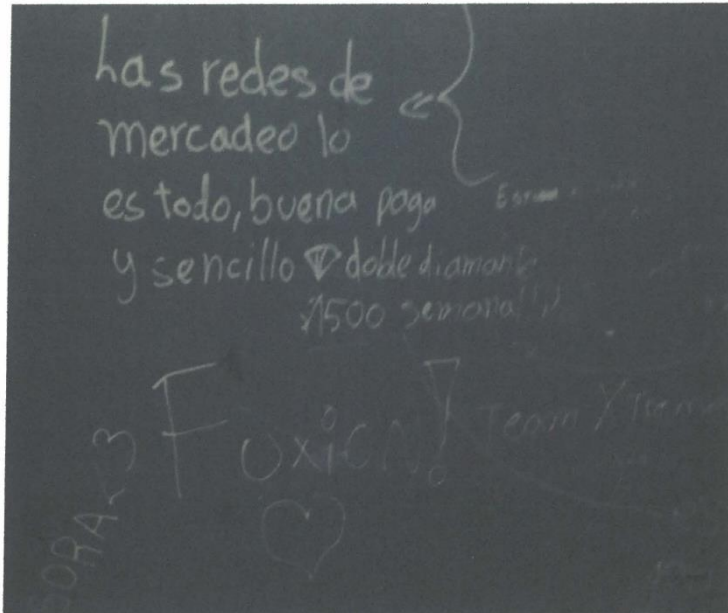 Las redes de
mercadeo lo
es todo, buena paga
y sencillo doble diamante
1500 semanal!!
Fuxion!
Team